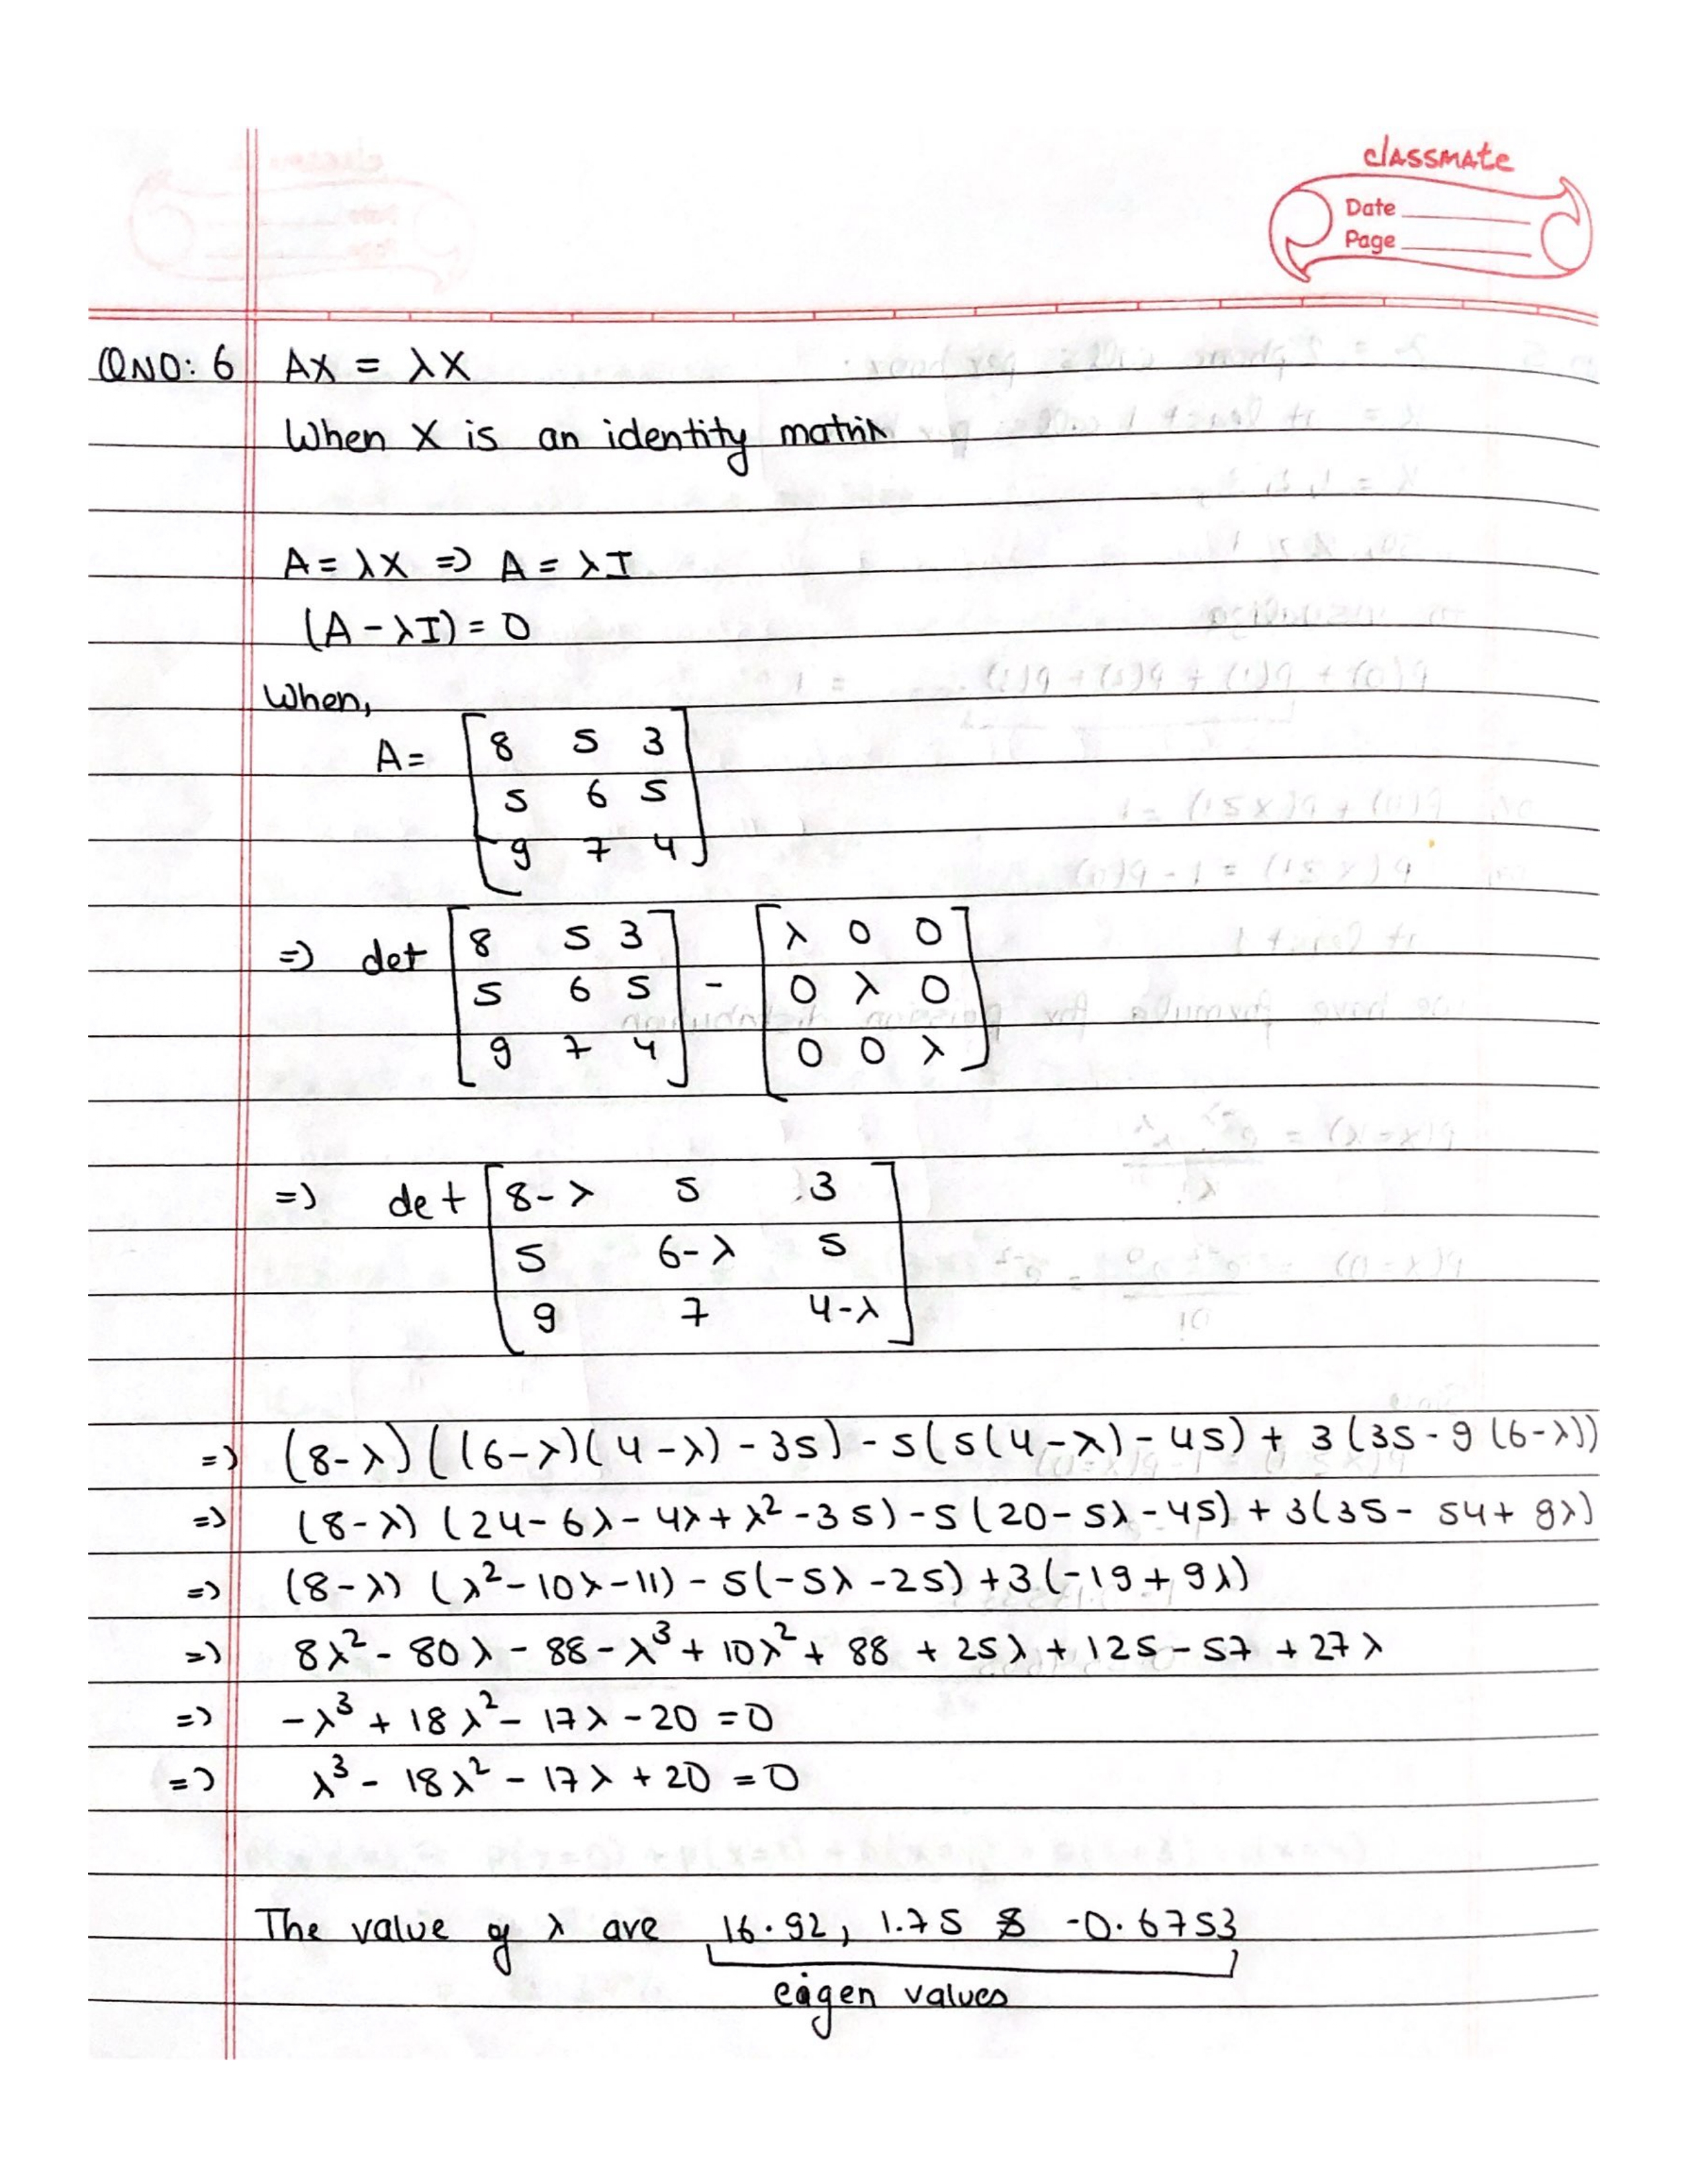 classmate
Date
Page
QNO: 6 AX = λX
When X is an identity matrix
A = λX => A = λI
(A - λI) = 0
When,
A = [8 5 3
5 6 5
9 7 4]
=> det [8 5 3
5 6 5
9 7 4] - [λ 0 0
0 λ 0
0 0 λ]
=> det [8-λ 5 3
5 6-λ 5
9 7 4-λ]
=> (8-λ) ((6-λ)(4-λ) - 35) - 5(5(4-λ) - 45) + 3(35 - 9(6-λ))
=> (8-λ) (24 - 6λ - 4λ + λ² - 35) - 5(20 - 5λ - 45) + 3(35 - 54 + 9λ)
=> (8-λ) (λ² - 10λ - 11) - 5(-5λ - 25) + 3(-19 + 9λ)
=> 8λ² - 80λ - 88 - λ³ + 10λ² + 88 + 25λ + 125 - 57 + 27λ
=> -λ³ + 18λ² - 17λ - 20 = 0
=> λ³ - 18λ² - 17λ + 20 = 0
The value of λ are 16.92, 1.75 & -0.6753
eigen values